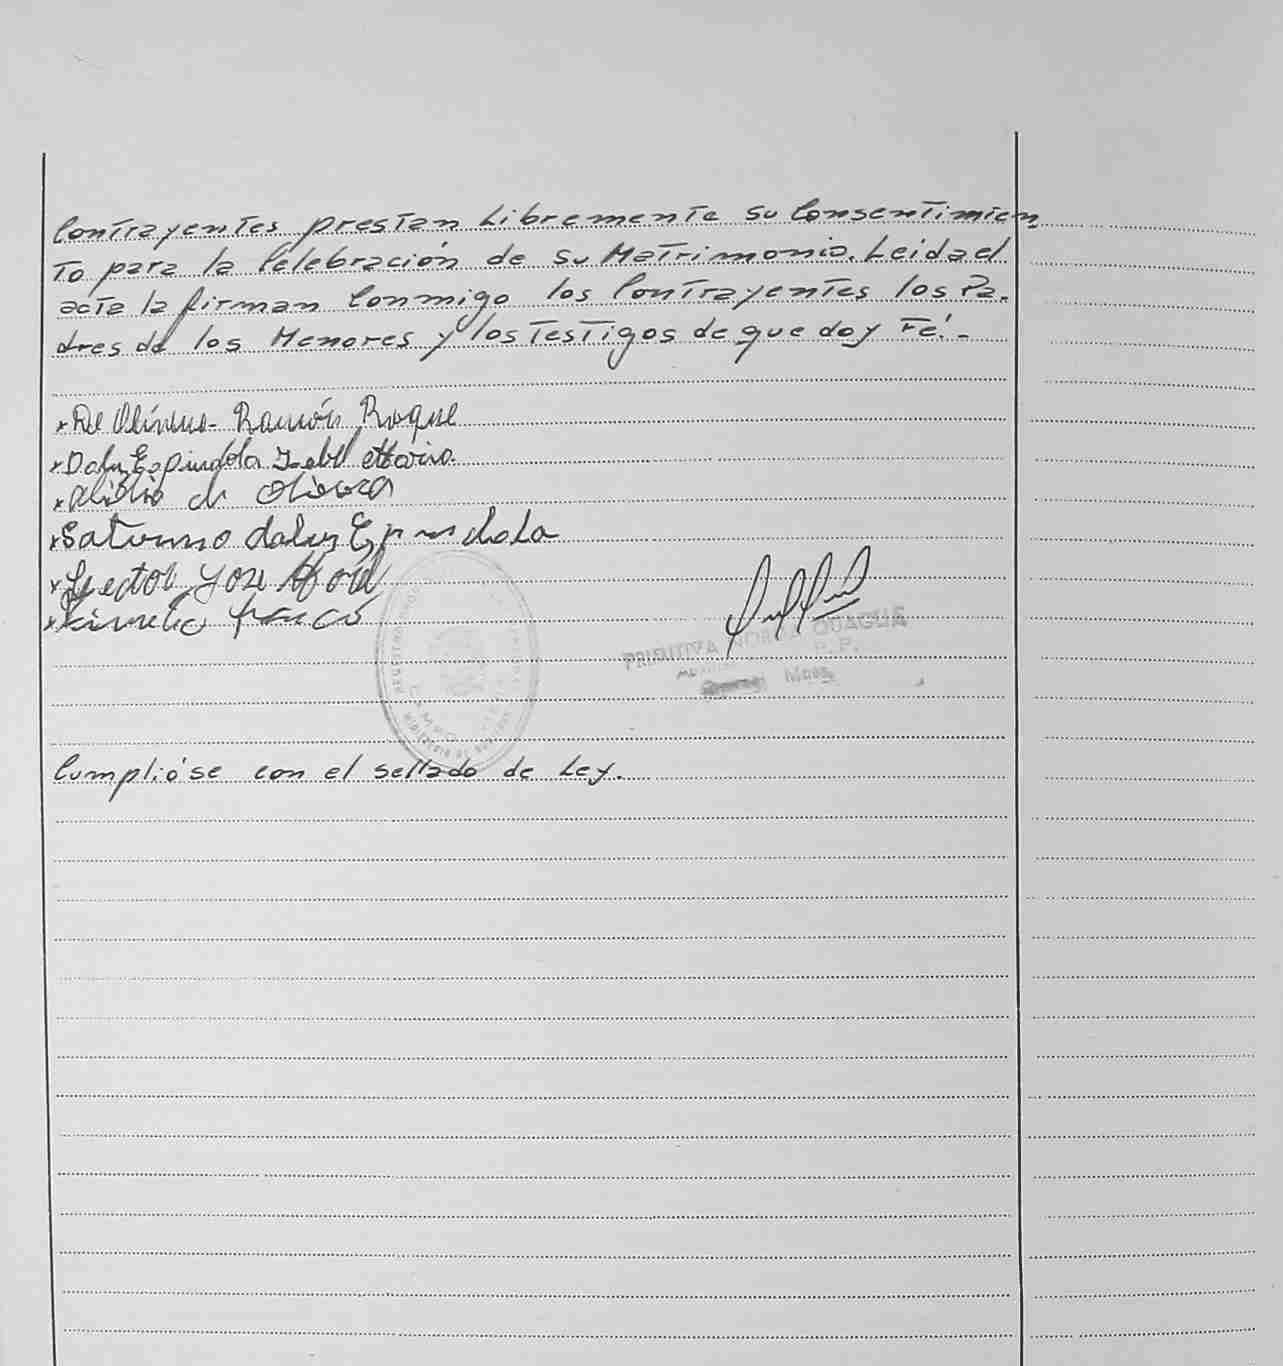 Contrayentes prestan Libremente su Consentimien
to para la Celebración de su Matrimonio. Leida el
acta la firman Conmigo los Contrayentes los Pa.
dres de los Menores y los Testigos de que doy Fé.-
x De Oliveira- Ramón Roque
x Daluz Espindola Isabel Maria.
x Alibio de Oliveira
x Saturnino daluz Espindola
x Hector José
x
PRIMITIVA NORMA QUAGLIA
Cumplióse con el sellado de Ley.